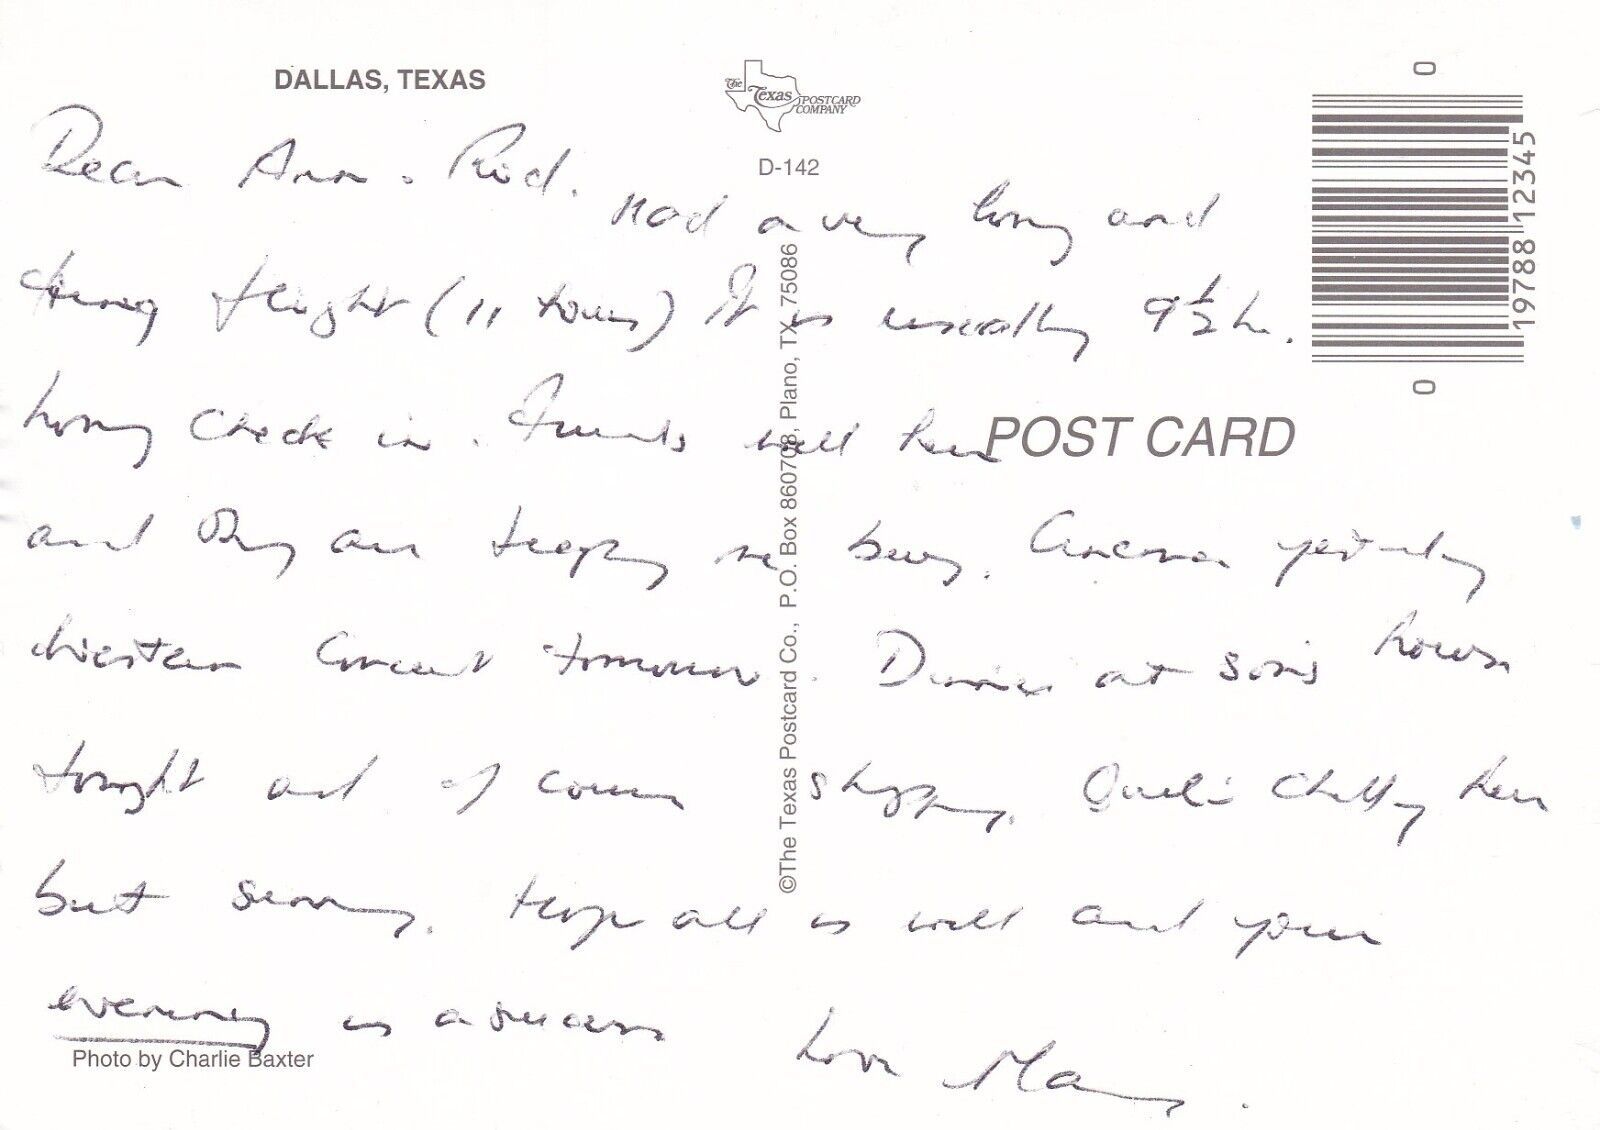 DALLAS, TEXAS
The Texas POSTCARD COMPANY
D-142
Dear Ann . Rod.
Had a very long and
tiring flight (11 hours) It is usually 9½ h.
Long check in. Friends well here
and they are keeping me busy. Cinema yesterday
Western Concert tomorrow. Dinner at son's house
tonight and of course shopping. Quite chilly here
but sunny. Hope all is well and your
evening is a success
Love Mary.
©The Texas Postcard Co., P.O. Box 860708, Plano, TX 75086
0
19788 12345
0
POST CARD
Photo by Charlie Baxter